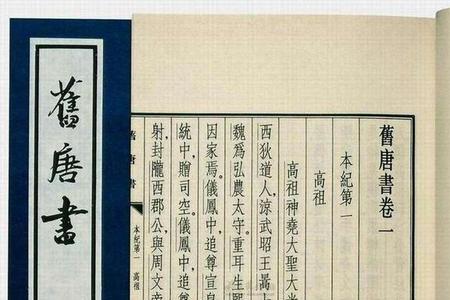 舊唐書
舊唐書卷一
本紀第一
高祖
高祖神堯大聖大光
西狄道人涼武昭王暠七
魏爲弘農太守。重耳生熙
因家焉。儀鳳中，追尊宣皇
統中，贈司空。儀鳳中，追尊
射封隴西郡公，與周文帝
舊唐書
本紀第一 高祖